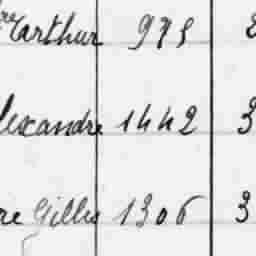 re Carthur 975 2
lexandre 1442 3
re Gilles 1306 3